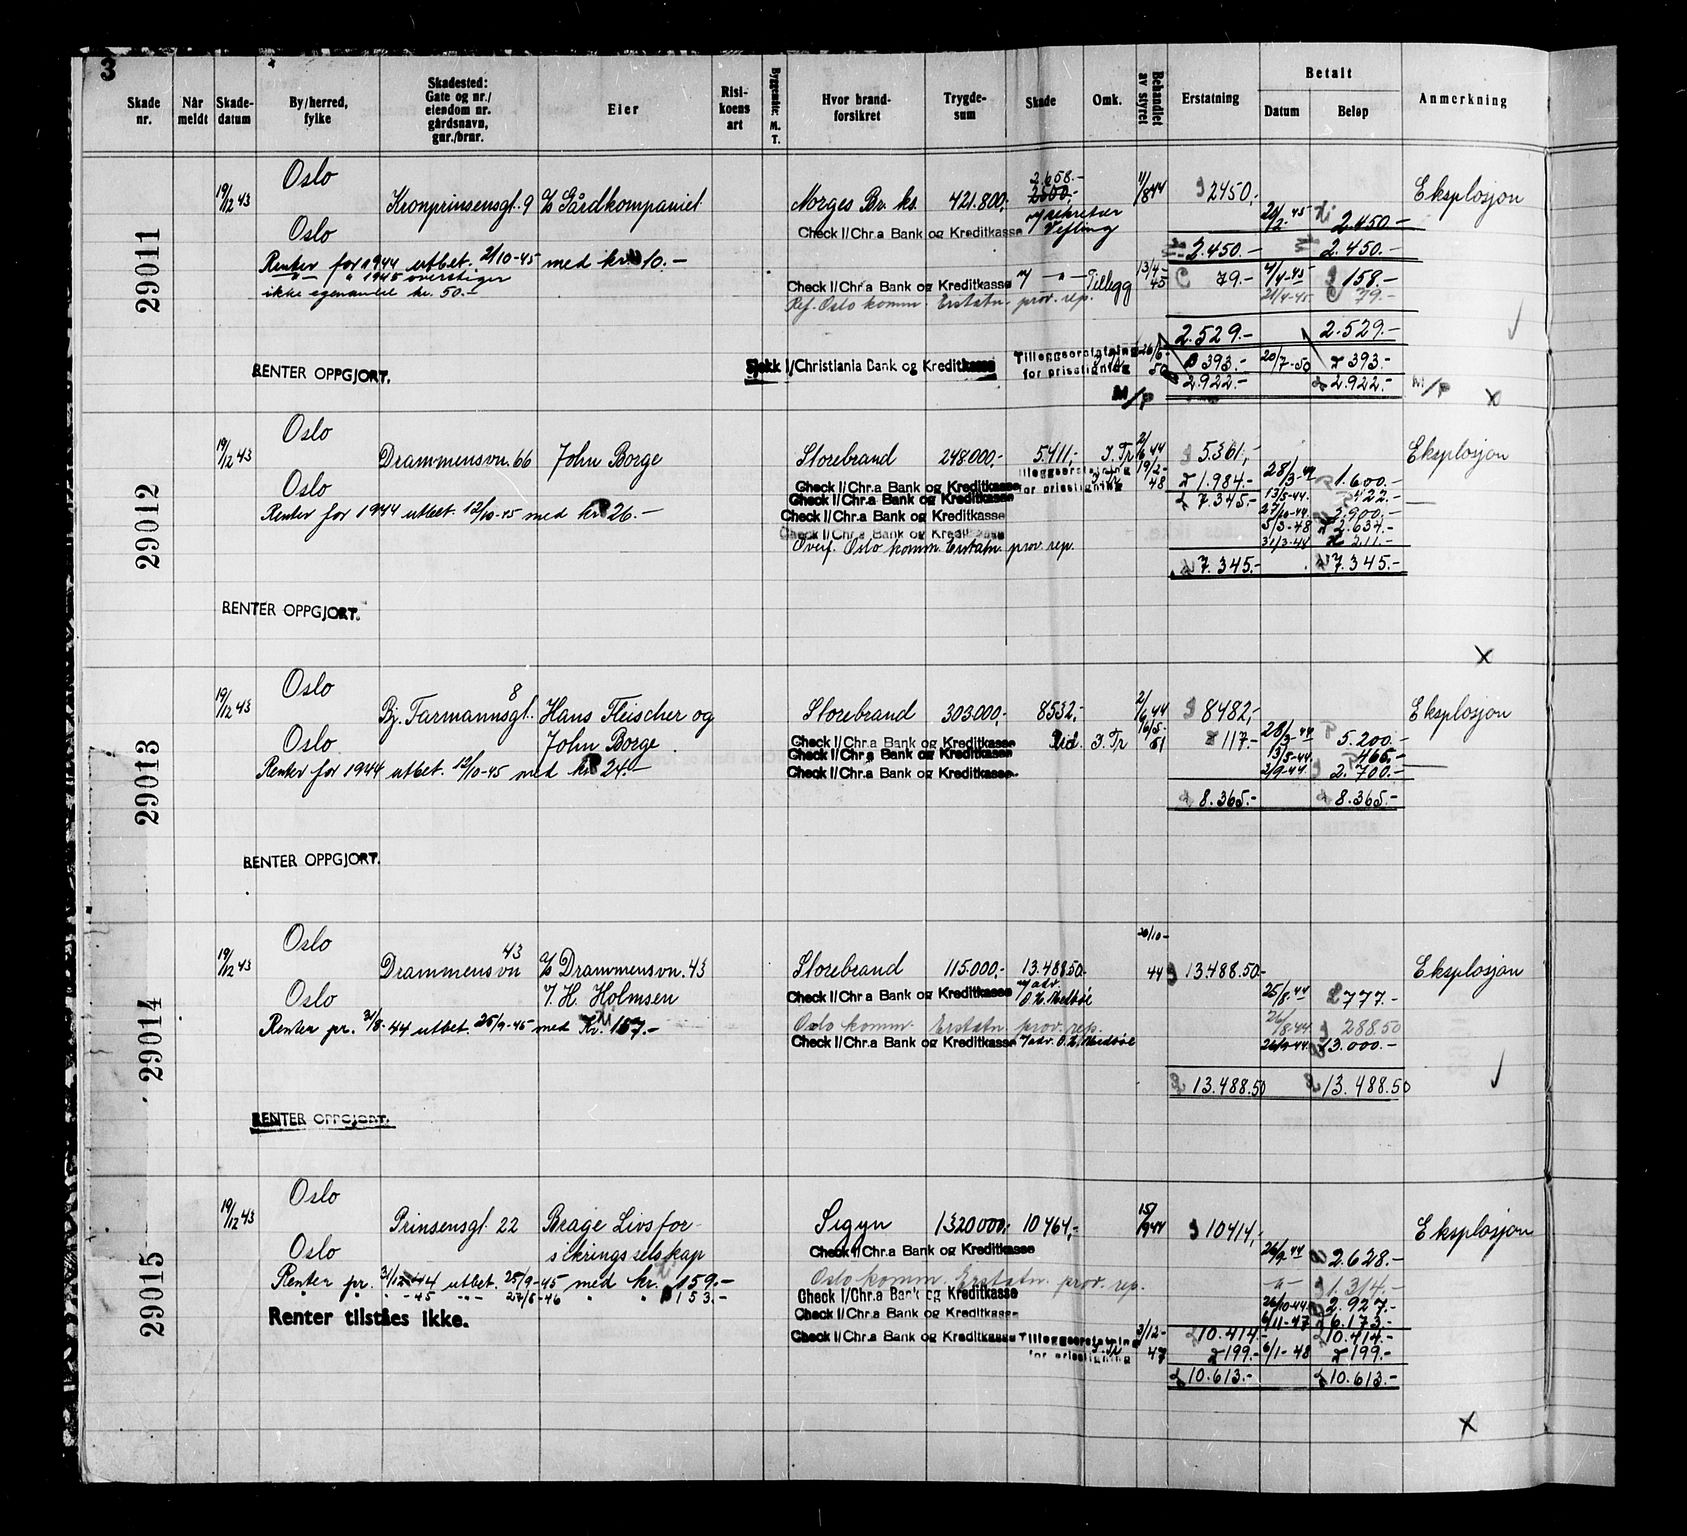 3
Skade nr. Når meldt Skade-datum By/herred, fylke Skadested: Gate og nr./ eiendom nr. gårdsnavn, gnr./brnr. Eier Risi-koens art Byggemåte M. T. Hvor brand-forsikret Trygde-sum Skade Omk. Behandlet av styret Erstatning Betalt Datum Beløp Anmerkning
29011
Oslo 2.658.-
19/12 43 Kronprinsensgt. 9 Gårdkompaniet Norges Br. ks. 421.800,- 2500,- 1/8 44 2450,- Eksplosjon
Oslo Check I/Chr.a Bank og Kreditkasse 20/2-45 2.450.-
Renter for 1944 utbet. 2/10-45 med kr. 10.- 2.450.- 2.450.-
-"- " 1945 overstiger
ikke egenandel kr. 50.- Check I/Chr.a Bank og Kreditkasse Tillegg 13/4-45 79.- 4/4-45 158.-
Ref. Oslo komm. Erstatn. prov. rep. 21/4-45 79.-
2.529.- 2.529.-
RENTER OPPGJORT. Sjekk I/Christiania Bank og Kreditkasse Tilleggserstatning for prisstigning 26/6-50 393.- 20/7-50 393.-
2922.- 2.922.- M/P x
M/P
29012
Oslo
19/12 43 Drammensvn. 66 John Borge Storebrand 248.000,- 5.411,- J. Tr 2/6 44 5.361,- Eksplosjon
Oslo Tilleggserstatning for prisstigning 19/2-48 1.984.- 28/3-44 1.600.-
Check I/Chr.a Bank og Kreditkasse
Check I/Chr.a Bank og Kreditkasse 7.345.- 13/5-44 422.-
Renter for 1944 utbet. 12/10-45 med kr. 26.- Check I/Chr.a Bank og Kreditkasse 27/10-44 2.900.-
Check I/Chr.a Bank og Kreditkasse 5/3-48 2.634.-
Overf. Oslo komm. Erstatn. prov. rep. 31/3-48 211.-
7.345.- 7.345.-
RENTER OPPGJORT.
x
29013
Oslo
19/12 43 Bj. Farmannsgt. 8 Hans Fleischer og Storebrand 303.000,- 8532,- 2/6 44 8482,- Eksplosjon
Oslo John Borge. Check I/Chr.a Bank og Kreditkasse Red. J. Tr 16/5-51 117.- 28/3-44 5.200.-
Check I/Chr.a Bank og Kreditkasse 13/5-44 465.-
Renter for 1944 utbet. 12/10-45 med kr. 24.- Check I/Chr.a Bank og Kreditkasse 2/9-44 2.700.-
8.365.- 8.365.-
RENTER OPPGJORT.
29014
Oslo 20/10-44
19/12 43 Drammensvn 43 Drammensvn. 43 Storebrand 115.000,- 13.488.50 13.488.50 Eksplosjon
Oslo J. H. Holmsen Check I/Chr.a Bank og Kreditkasse 25/8-44 777.-
Renter pr. 31/8-44 utbet. 25/9-45 med kr. 157.- Oslo komm. Erstatn. prov. rep. 26/8-44 288.50
Check I/Chr.a Bank og Kreditkasse 26/9-44 13.000.-
13.488.50 13.488.50
RENTER OPPGJORT.
29015
Oslo
19/12 43 Prinsensgt. 22 Brage Livsfor- Sigyn 1320000,- 10464,- 15/9 44 10414,- Eksplosjon
Oslo sikringsselskap Check I/Chr.a Bank og Kreditkasse 26/9-44 2.628.-
Renter pr. 31/12-44 utbet. 25/9-45 med kr. 159.- Oslo komm. Erstatn. prov. rep. -"- 1.314.-
" " -45 -"- 27/5-46 " " 153.- Check I/Chr.a Bank og Kreditkasse 26/10-44 2.927.-
Renter tilståes ikke. Check I/Chr.a Bank og Kreditkasse 6/11-47 6.173.-
Check I/Chr.a Bank og Kreditkasse Tilleggserstatning for prisstigning 3/12-47 10.414.- 10.414.-
199.- 6/1-48 199.-
10.613.- 10.613.-
x